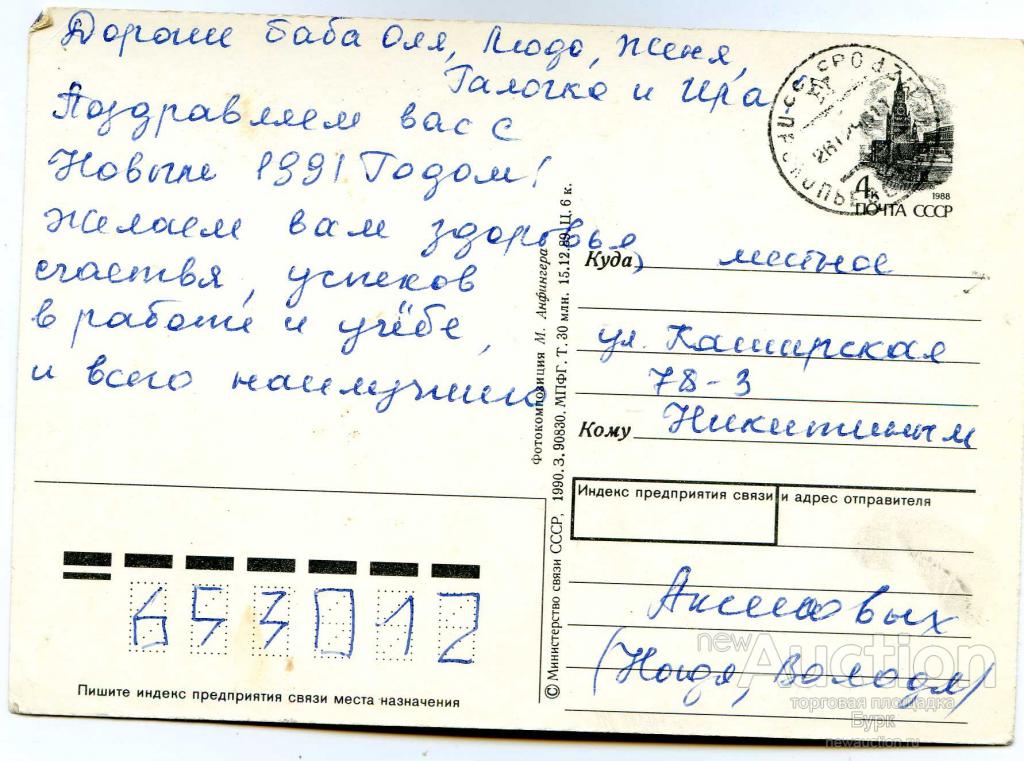 Дорогие баба Оля, Люда, Женя,
Галочка и Ира
Поздравляем вас с
Новым 1991 Годом!
Желаем вам здоровья,
счастья, успехов
в работе и учёбе,
и всего наилучшего
4к
1988
ПОЧТА СССР
Куда местное
ул. Каширская
78-3
Кому Никитиным
Индекс предприятия связи и адрес отправителя
(Надя, Володя)
653012
Пишите индекс предприятия связи места назначения
Фотокомпозиция М. Анфингера
© Министерство связи СССР, 1990. З. 90830. МПФГ. Т. 30 млн. 15.12.89. Ц. 6 к.
newAuction
торговая площадка
Бурк
newauction.ru